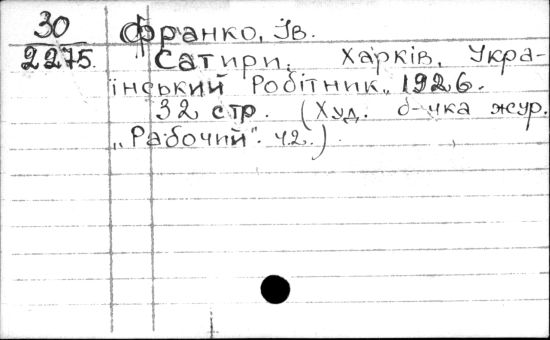 30 Франко, Ів.
2275. Сатири. Харків, Укра-
їнський Робітник, 1926.
32 стр. (Худ. б-чка жур.
„Рабочий". 42.)